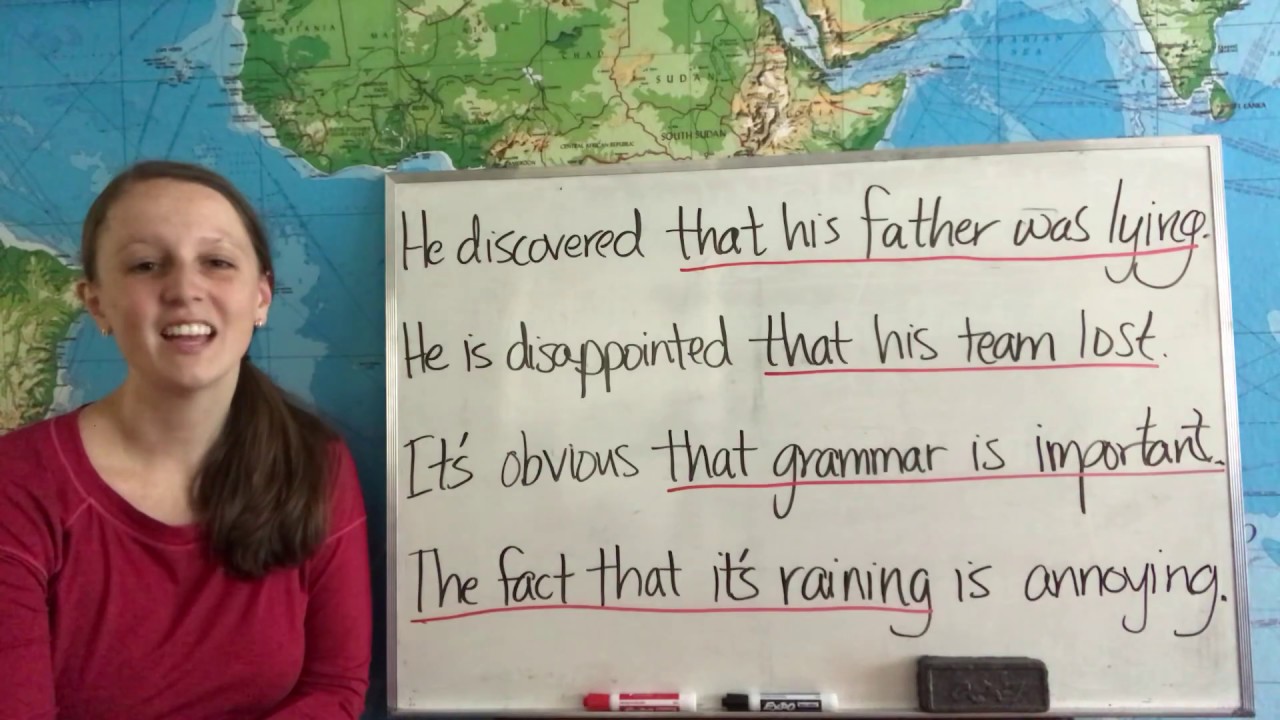 CHAD
SUDAN
SOUTH SUDAN
CENTRAL AFRICAN REPUBLIC
ARABIAN
SEA
He discovered that his father was lying.
He is disappointed that his team lost.
It's obvious that grammar is important.
The fact that it's raining is annoying.
EXPO